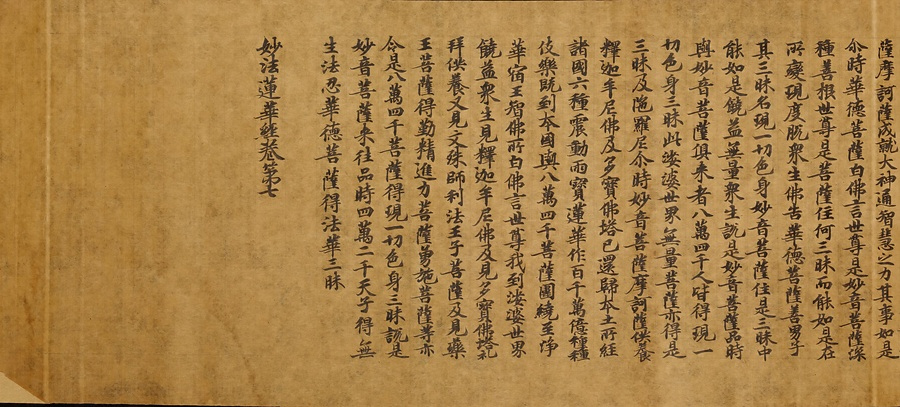 薩摩訶薩成就大神通智慧之力其事如是
尒時華德菩薩白佛言世尊是妙音菩薩深
種善根世尊是菩薩住何三昧而能如是在
所變現度脫衆生佛告華德菩薩善男子
其三昧名現一切色身妙音菩薩住是三昧中
能如是饒益無量衆生說是妙音菩薩品時
與妙音菩薩俱来者八萬四千人皆得現一
切色身三昧此娑婆世界無量菩薩亦得是
三昧及陁羅尼尒時妙音菩薩摩訶薩供養
釋迦牟尼佛及多寶佛塔已還歸本土所經
諸國六種震動雨寶蓮華作百千萬億種種
伎樂既到本國與八萬四千菩薩圍繞至淨
華宿王智佛所白佛言世尊我到娑婆世界
饒益衆生見釋迦牟尼佛及見多寶佛塔礼
拜供養又見文殊師利法王子菩薩及見藥
王菩薩得勤精進力菩薩勇施菩薩等亦
令是八萬四千菩薩得現一切色身三昧說是
妙音菩薩来往品時四萬二千天子得無
生法忍華德菩薩得法華三昧
妙法蓮華經卷第七